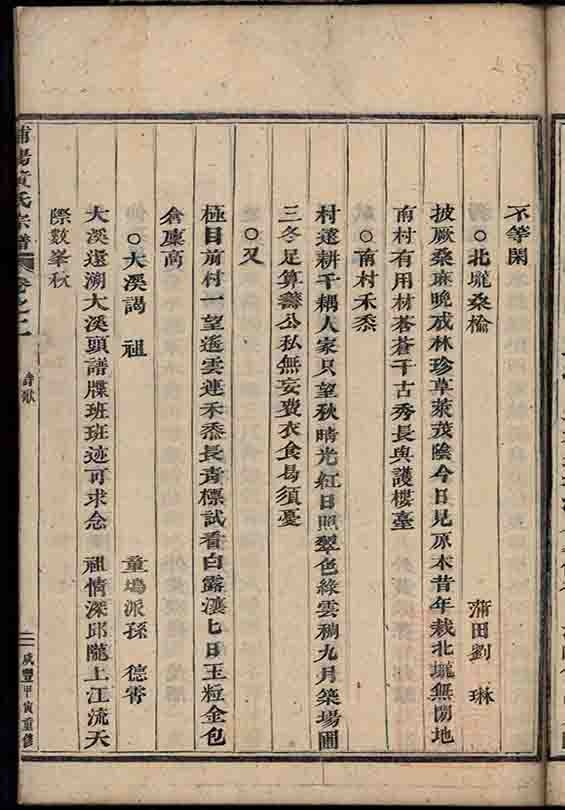 不等閑
○北壠桑榆　蒲田劉　琳
披厥桑麻晚成林珍草萊茂陰今日見原本昔年栽北壠無閒地
南村有用材蒼蒼千古秀長與護樓臺
○南村禾黍
村遠耕千耦人家只望秋晴光紅日照翠色綠雲稠九月築場圃
三冬足算籌公私無妄費衣食曷須憂
○又
極目前村一望遙雲連禾黍長青標試看白露凄七日玉粒金包
倉廩高
○大溪謁　祖　童塢派孫　德霄
大溪還溯大溪頭譜牒班班迹可求念　祖情深邱隴上江流天
際數峯秋
浦陽黃氏宗譜　卷之二　詩歌　二　咸豐甲寅重修